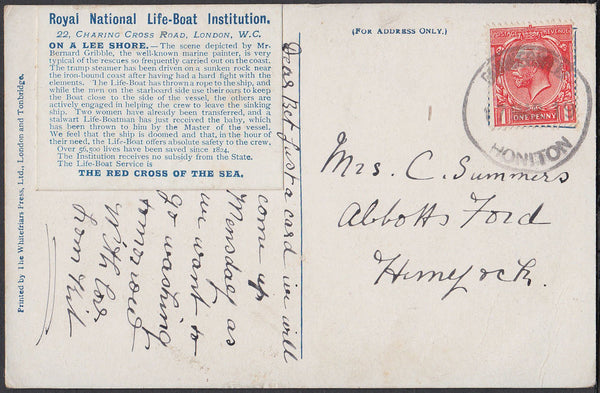 Royal National Life-Boat Institution.
22, CHARING CROSS ROAD, LONDON, W.C.
ON A LEE SHORE.—The scene depicted by Mr.
Bernard Gribble, the well-known marine painter, is very
typical of the rescues so frequently carried out on the coast.
The tramp steamer has been driven on a sunken rock near
the iron-bound coast after having had a hard fight with the
elements. The Life-Boat has thrown a rope to the ship, and
while the men on the starboard side use their oars to keep
the Boat close to the side of the vessel, the others are
actively engaged in helping the crew to leave the sinking
ship. Two women have already been transferred, and a
stalwart Life-Boatman has just received the baby, which
has been thrown to him by the Master of the vessel.
We feel that the ship is doomed and that, in the hour of
their need, the Life-Boat offers absolute safety to the crew.
Over 56,500 lives have been saved since 1824.
The Institution receives no subsidy from the State.
The Life-Boat Service is
THE RED CROSS OF THE SEA.
Printed by The Whitefriars Press, Ltd., London and Tonbridge.
Dear Bet Just a card we will
come up
Wensday as
we want to
go washing
tomorrow
With love
from
(FOR ADDRESS ONLY.)
POSTAGE REVENUE
1 1
ONE PENNY
HONITON
Mrs. C. Summers
Abbotts Ford
Hemyock.